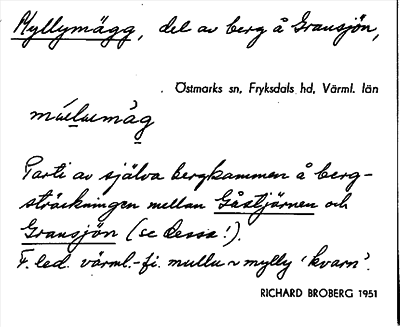 Myllymägg, del av berg å Gransjön,
Östmarks sn, Fryksdals hd, Värml. län
múlumàg
Parti av själva bergkammen å berg-
sträckningen mellan Gåstjärnen och
Gransjön (se dessa!).
F. led. värml.-fi. mullu ~ mylly 'kvarn'.
RICHARD BROBERG 1951